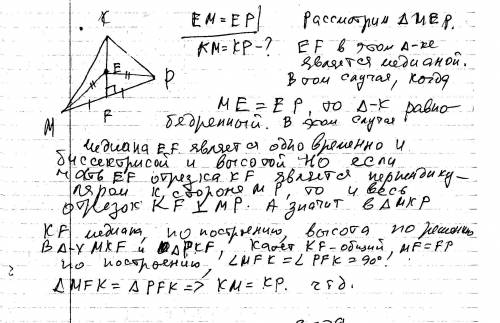 K
E
P
M
F
EM = EP
KM = KP - ?
Рассмотрим ΔMEP.
EF в этом Δ-ке
является медианой.
В том случае, когда
ME = EP, то Δ-к равно-
бедренный. В этом случае
медиана EF является одновременно и
биссектрисой и высотой. Но если
часть EF отрезка KF является перпендику-
ляром к стороне MP, то и весь
отрезок KF ⊥ MP. А значит в ΔMKP
KF медиана по построению, высота по решению
В Δ-х MKF и ΔPKF, катет KF - общий, MF = FP
по построению, ∠MFK = ∠PFK = 90°,
ΔMFK = ΔPFK => KM = KP. ч т д.